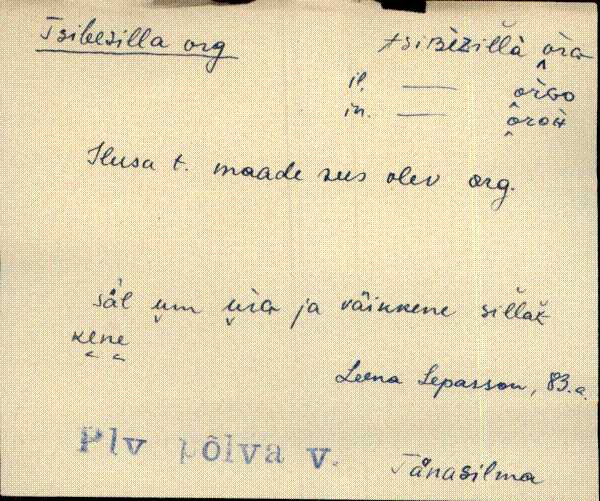 Tsibesilla org
tsiʙèzil̆là òrɢ
il. — òrɢo
in. — òroн
Ilusa t. maade sees olev org.
säl um ùrɢ ja väikkene sil̆lak̆
kene
Leena Lepasson, 83.a.
Plv Põlva v.
Tännasilma